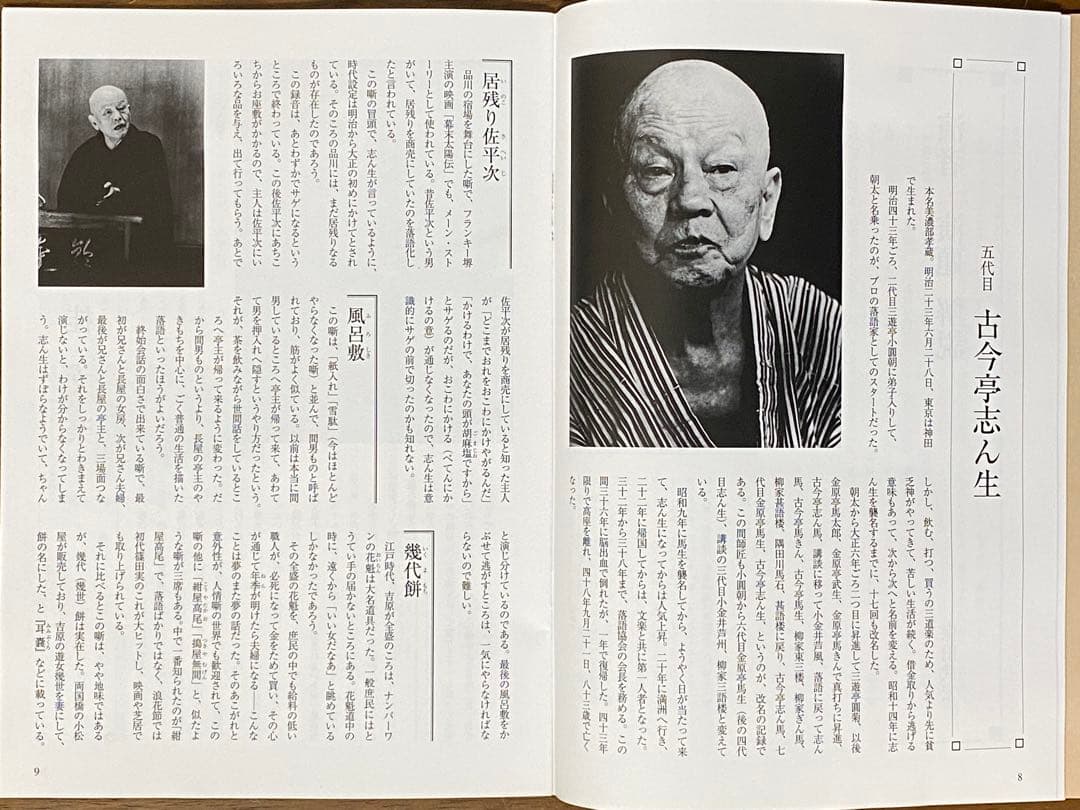 五代目 古今亭志ん生
本名美濃部孝蔵。明治二十三年六月二十八日、東京は神田
で生まれた。
明治四十三年ごろ、二代目三遊亭小圓朝に弟子入りして、
朝太と名乗ったのが、プロの落語家としてのスタートだった。
しかし、飲む、打つ、買うの三道楽のため、人気より先に貧
乏神がやってきて、苦しい生活が続く。借金取りから逃げる
意味もあって、次から次へと名前を変える。昭和十四年に志
ん生を襲名するまでに、十七回も改名した。
朝太から大正六年ごろ二つ目に昇進して三遊亭圓菊、以後
金原亭馬太郎、金原亭武生、金原亭馬きんで真打ちに昇進、
古今亭志ん馬、講談に移って小金井芦風、落語に戻って志ん
馬、古今亭馬きん、古今亭馬生、柳家東三楼、柳家ぎん馬、
柳家甚語楼、隅田川馬石、甚語楼に戻り、古今亭志ん馬、七
代目金原亭馬生、古今亭志ん生、というのが、改名の記録で
ある。この間師匠も小圓朝から六代目金原亭馬生（後の四代
目志ん生）、講談の三代目小金井芦州、柳家三語楼と変えて
いる。
昭和九年に馬生を襲名してから、ようやく日が当たって来
て、志ん生になってからは人気上昇。二十年に満洲へ行き、
二十二年に帰国してからは、文楽と共に第一人者となった。
三十二年から三十八年まで、落語協会の会長を務める。この
間三十六年に脳出血で倒れたが、一年で復帰した。四十三年
限りで高座を離れ、四十八年九月二十一日、八十三歳で亡く
なった。
8
居残り佐平次
いのこ さへいじ
品川の宿場を舞台にした噺で、フランキー堺
主演の映画「幕末太陽伝」でも、メーン・スト
ーリーとして使われている。昔佐平次という男
がいて、居残りを商売にしていたのを落語化し
たと言われている。
この噺の冒頭で、志ん生が言っているように、
時代設定は明治から大正の初めにかけてとされ
ている。そのころの品川には、まだ居残りなる
ものが存在したのであろう。
この録音は、あとわずかでサゲになるという
ところで終わっている。この後佐平次にあちこ
ちからお座敷がかかるので、主人は佐平次にい
ろいろな品を与え、出て行ってもらう。あとで
佐平次が居残りを商売にしていると知った主人
が、「どこまでおれをおこわにかけやがるんだ」
「かけるわけで、あなたの頭が胡麻塩ですから」
とサゲるのだが、おこわにかける（ぺてんにか
けるの意）が通じなくなったので、志ん生は意
識的にサゲの前で切ったのかも知れない。
風呂敷
ふろしき
この噺は、「紙入れ」「雪駄」（今はほとんど
やらなくなった噺）と並んで、間男ものと呼ば
れており、筋がよく似ている。以前は本当に間
男しているところへ亭主が帰って来て、あわて
て男を押入れへ隠すというやり方だったという。
それが、茶を飲みながら世間話をしているとこ
ろへ亭主が帰って来るように変わった。だ
から間男ものというより、長屋の亭主のや
きもちを中心に、ごく普通の生活を描いた
落語といったほうがよいだろう。
終始会話の面白さで出来ている噺で、最
初が兄さんと長屋の女房、次が兄さん夫婦、
最後が兄さんと長屋の亭主と、三場面つな
がっている。それをしっかりとわきまえて
演じないと、わけが分からなくなってしま
う。志ん生はずぼらなようでいて、ちゃん
と演じ分けているのである。最後の風呂敷をか
ぶせて逃がすところは、一気にやらなければな
らないので難しい。
幾代餅
いくよもち
江戸時代、吉原が全盛のころは、ナンバーワ
ンの花魁は大名道具だった。一般庶民にはと
うてい手の届かないところにある。花魁道中の
時に、遠くから「いい女だなあ」と眺めている
しかなかったであろう。
その全盛の花魁を、庶民の中でも給料の低い
職人が、必死になって金をためて買い、その心
が通じて年季が明けたら夫婦になる――こんな
ことは夢のまた夢の話だった。そのあこがれと
意外性が、人情噺の世界でも歓迎されて、この
噺の他に「紺屋高尾」「搗屋無間」と、似たよ
うな噺が三席もある。中で一番知られたのが「紺
屋高尾」で、落語ばかりではなく、浪花節では
初代篠田実のこれが大ヒットし、映画や芝居で
も取り上げられている。
それに比べるとこの噺は、やや地味ではある
が、幾代（幾世）餅は実在した。両国橋の小松
屋が販売しており、吉原の遊女幾世を妻にして、
餅の名にした、と「耳嚢」などに載っている。
9